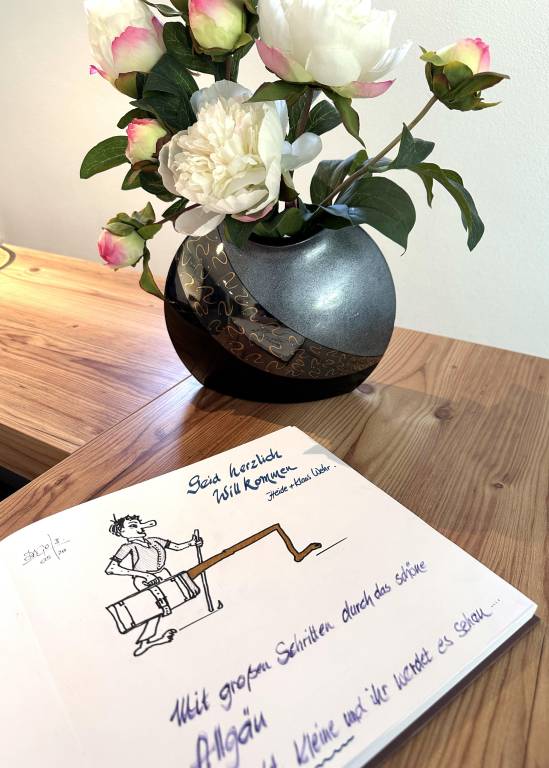 Seid herzlich
Willkommen
Heide + Klaus Wehr.
Mit großen Schritten durch das schöne
Allgäu
Kleine und ihr werdet es sehen ....